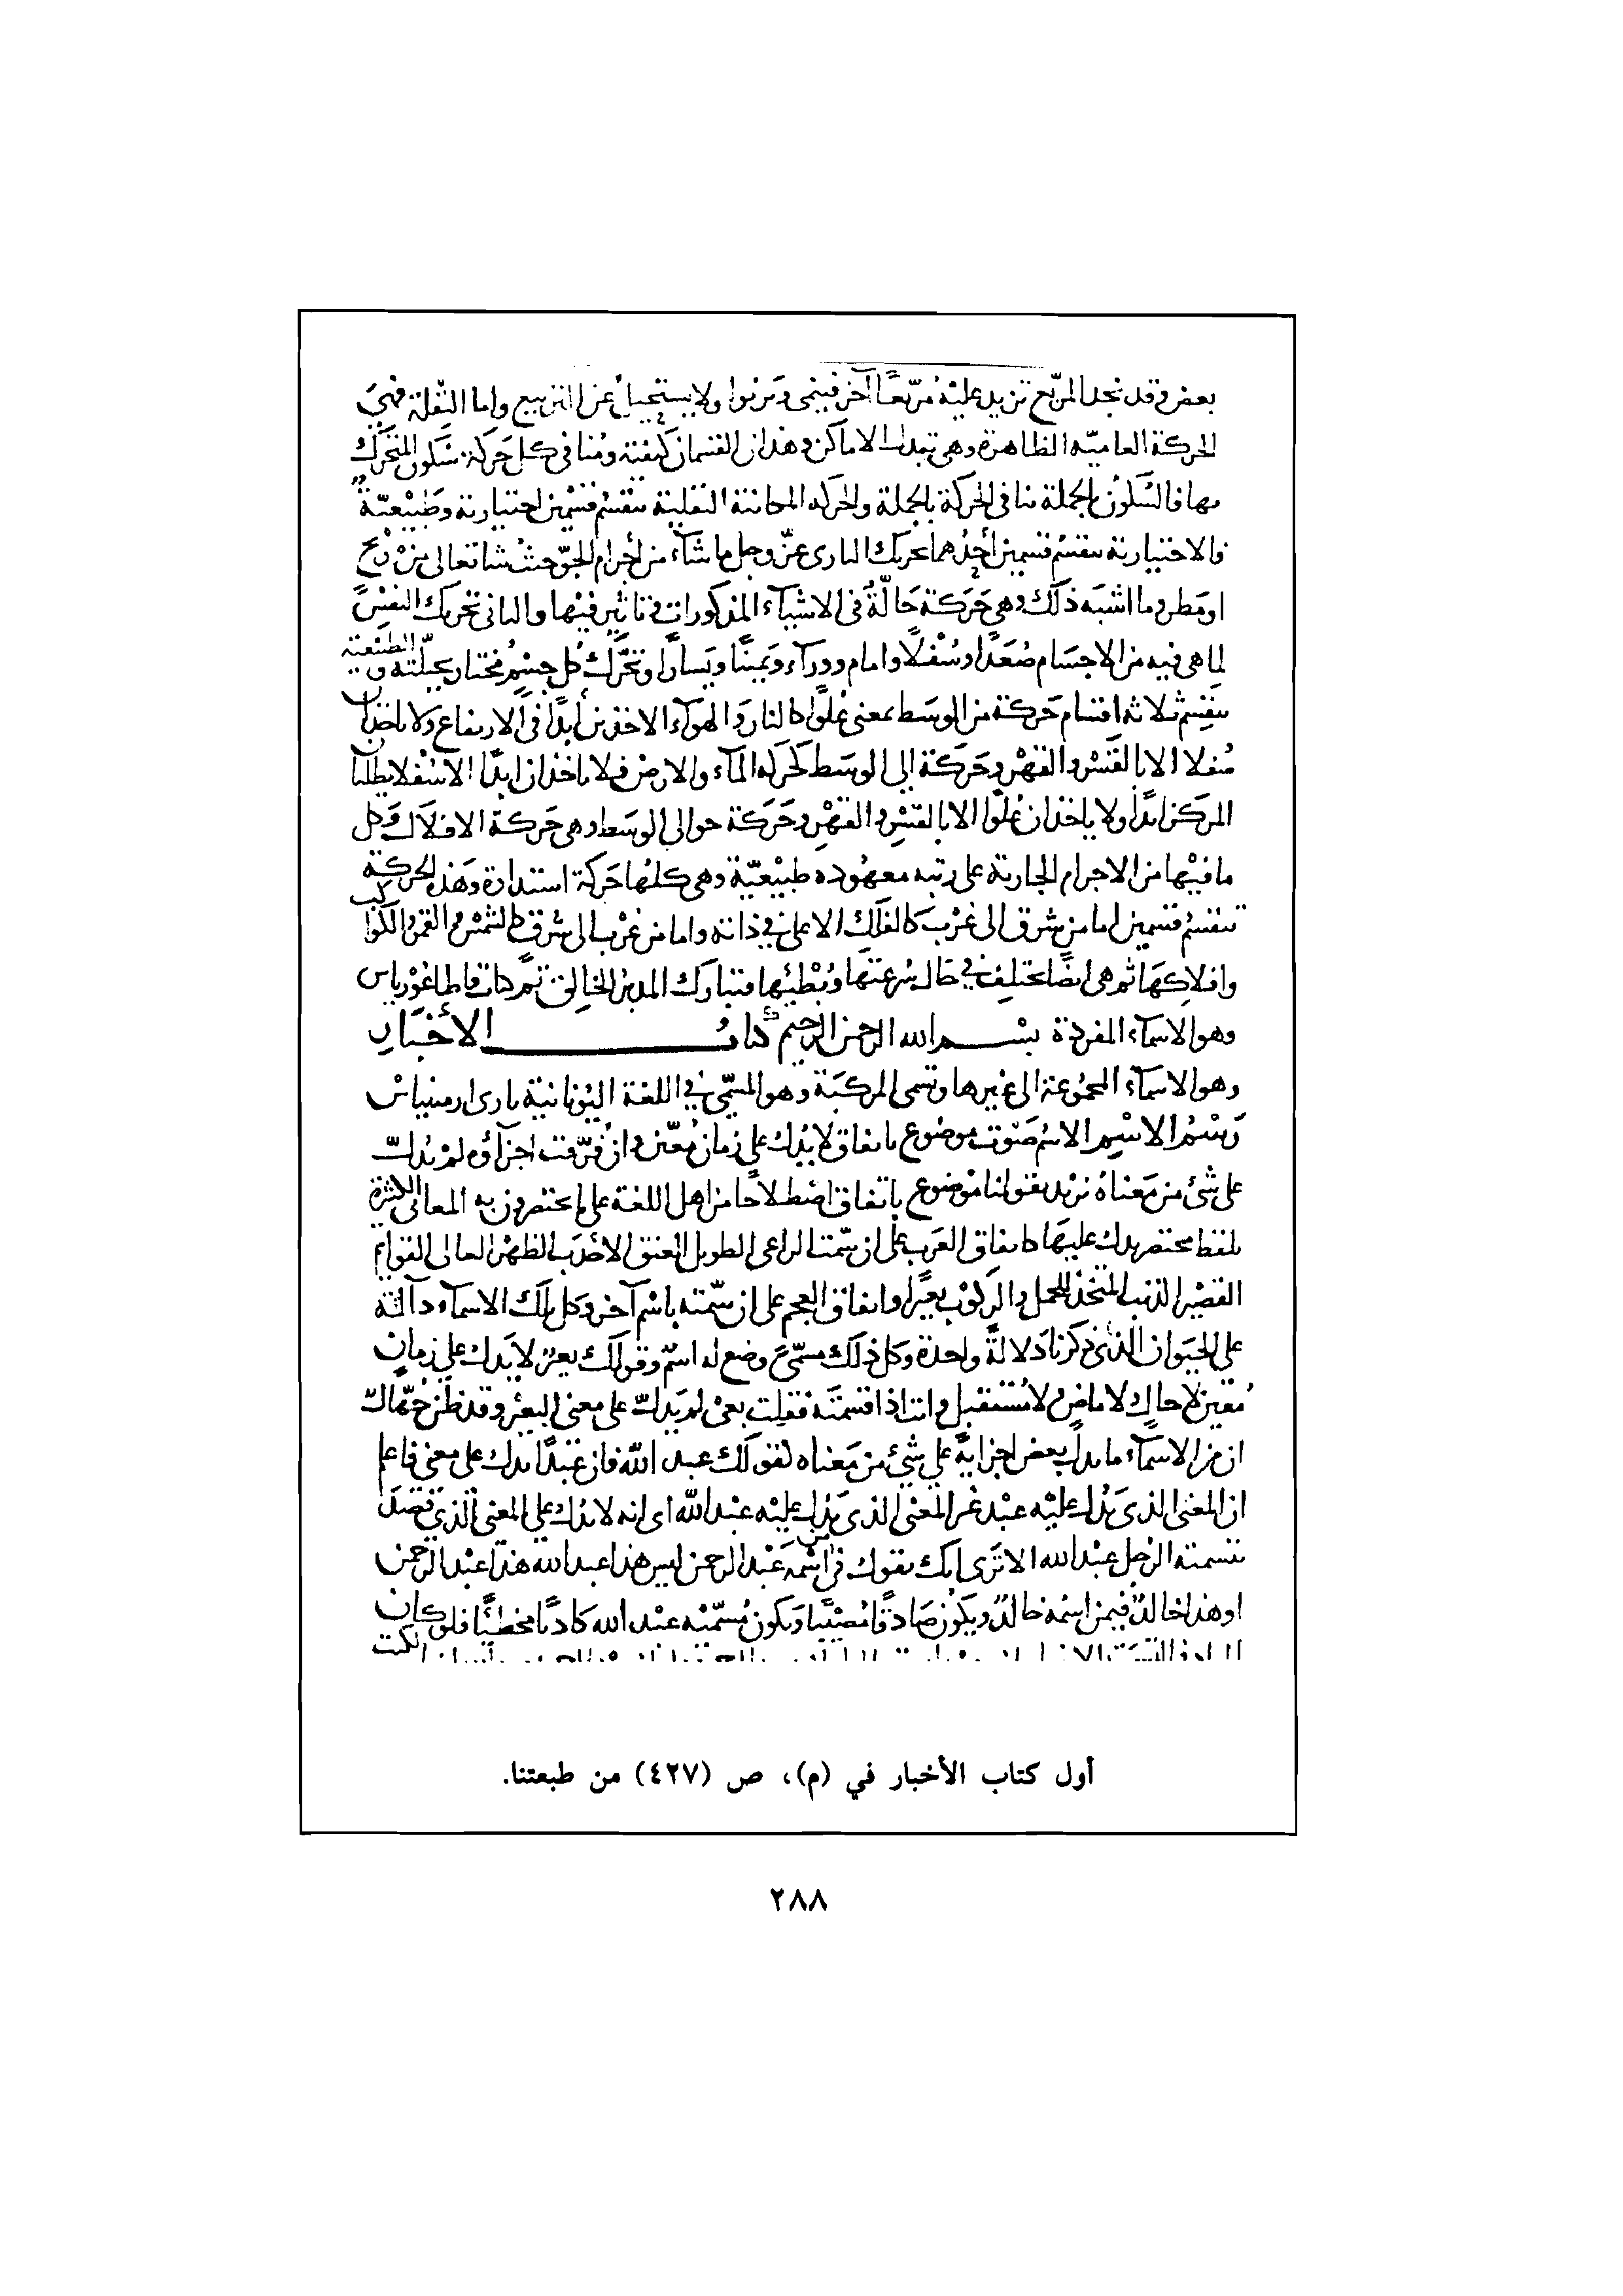 بعض وقد نجد المربّع تزيد عليْه مُربّعًا آخر فينمى ويَربوا ولا يستحيل عن التربيع واما النقْلة فهيَ
الحركة العاميّه الظاهرة وهى تبدل الاماكن وهذان القسمان كيفية ومنافى كل حَركة سَكون المتحَرّك
بها فالسّكونُ بالجملة منافى الحركة بالجملة والحركه المكانية النقلية تنقسمُ قسْمين اختيارية وَطبْيعيّةً
فالاختيارية تنقسمُ قسمين أحدُهما تحريك البارى عزّ وجل ما شآء من أجرام الجوّ حيث شا تعالى منْ ريح
او مَطر وما اشبَه ذلك وهى حَرَكة حَالّةٌ فى الاشيآء المذكورات فى تاثير فيْها والثانى تحريك النفْسُ
لما هى فيه من الاجسَام صُعَدًا وسُفْلاً وامام وورآء ويَمينًا ويَسارًا وتحَرّكُ كُل جسْمٍ مختار بجبلّته والطبْيعية
تنقَسِم ثلاثه اقسام حَركة من الوسَط بمعنى عُلوًّا كالنار والهوآء الاخذين أبدًا فى الارتفاع ولا ياخذان
سُفلا الا بالقَسْر والقهْر وحَركة الى الوسَط كحركه المآء والارض فلا ياخذان ابدًا الا سُفْلا يطلبان
المركز ابدًا ولا ياخذان عُلوًّا الا بالقسْر والقهْر وحَركة حوالى الوسَط وهى حَركة الافلاك وكل
ما فيْها من الاجرام الجارية على رتبه معهُوده طبْيعيّة وهى كلهُا حَركة استدارة وهَذه الحركة
تنقسمُ قسمين اما من شرق الى غرْب كالفَلك الاعلى فى ذاته واما من غرْب الى شرق كالشمْس والقمر والكَواكب
وافلاكِهَا ثم هى ايضًا تختلف فى حَال سُرعتهَا وبُطْئِها فتبارك المدبرُ الخالق تمّ كتاب قاطاغوْرياس
وهو الاسمآء المفردة بسْم الله الرحمن الرحيم كتابُ الأخْبَار
وهو الاسمآء المجموعة الى غيرها وتسمى المركبَة وهو المسَمّى فى اللغة اليُونانيّة بارى ارمنياسْ
رَسْمُ الاسْم الاسْم صَوْت موضوع باتفاق لا يَدُل على زمان مُعيّن وانْ فُرّقت اجزآؤه لم يَدُلّ
على شىْ من مَعناهُ نريد بقولنا موْضوع باتفاق اصْطلاحا من اهل اللغة على ما يختصرون به المعانى الكثيرة
بلفظ مختصر يدل عليهَا كاتفاق العَرب على ان سَمّت الراعى الطويل العنق الاحْدَب الظهْر العالى القوايم
القصْير الذنب المتخذ للحمل والركوْب بعيرًا واتفاق العجم على ان سَمّته باسْم آخر وكل تلك الاسمآء دآلة
على الحَيوان الذى ذكرْنا دلالةً واحدة وكل ذلك مسمّى وضع له اسْم وقولك بعير لا يَدل على زمانٍ
مُعَينٍ لا حال ولا ماضٍ ولا مُسْتقبل وانت اذا قسمتَه فقلت بعىْ لم يَدلّ على معنى البعيْر وقد ظَن جُهّالٌ
ان من الاسمآء ما يدل بعض اجزآيه على شىْء من مَعناه كقولك عبد الله فان عَبْدًا يدل على معنى فاعلم
ان المعْنى الذى يَدُل عليْه عبْد غير المعْنى الذى يدُل عليْه عبْد الله اى انه لا يدُل على المعْنى الذى قصَدَ
بتسمية الرّجل عبْد الله الا ترى انك تقول فى من اسْمه عَبْد الرحمن ليس هذا عبد الله هذا عبْد الرحمن
او هذا خالدٌ فيمن اسمُه خالدٌ ويكوُن صَادقًا مُصيْبًا ويكون مُسمّيْه عبْد الله كاذبًا مخطئًا فلو كان
أول كتاب الأخبار في (م)، ص (٤٢٧) من طبعتنا.
٢٨٨